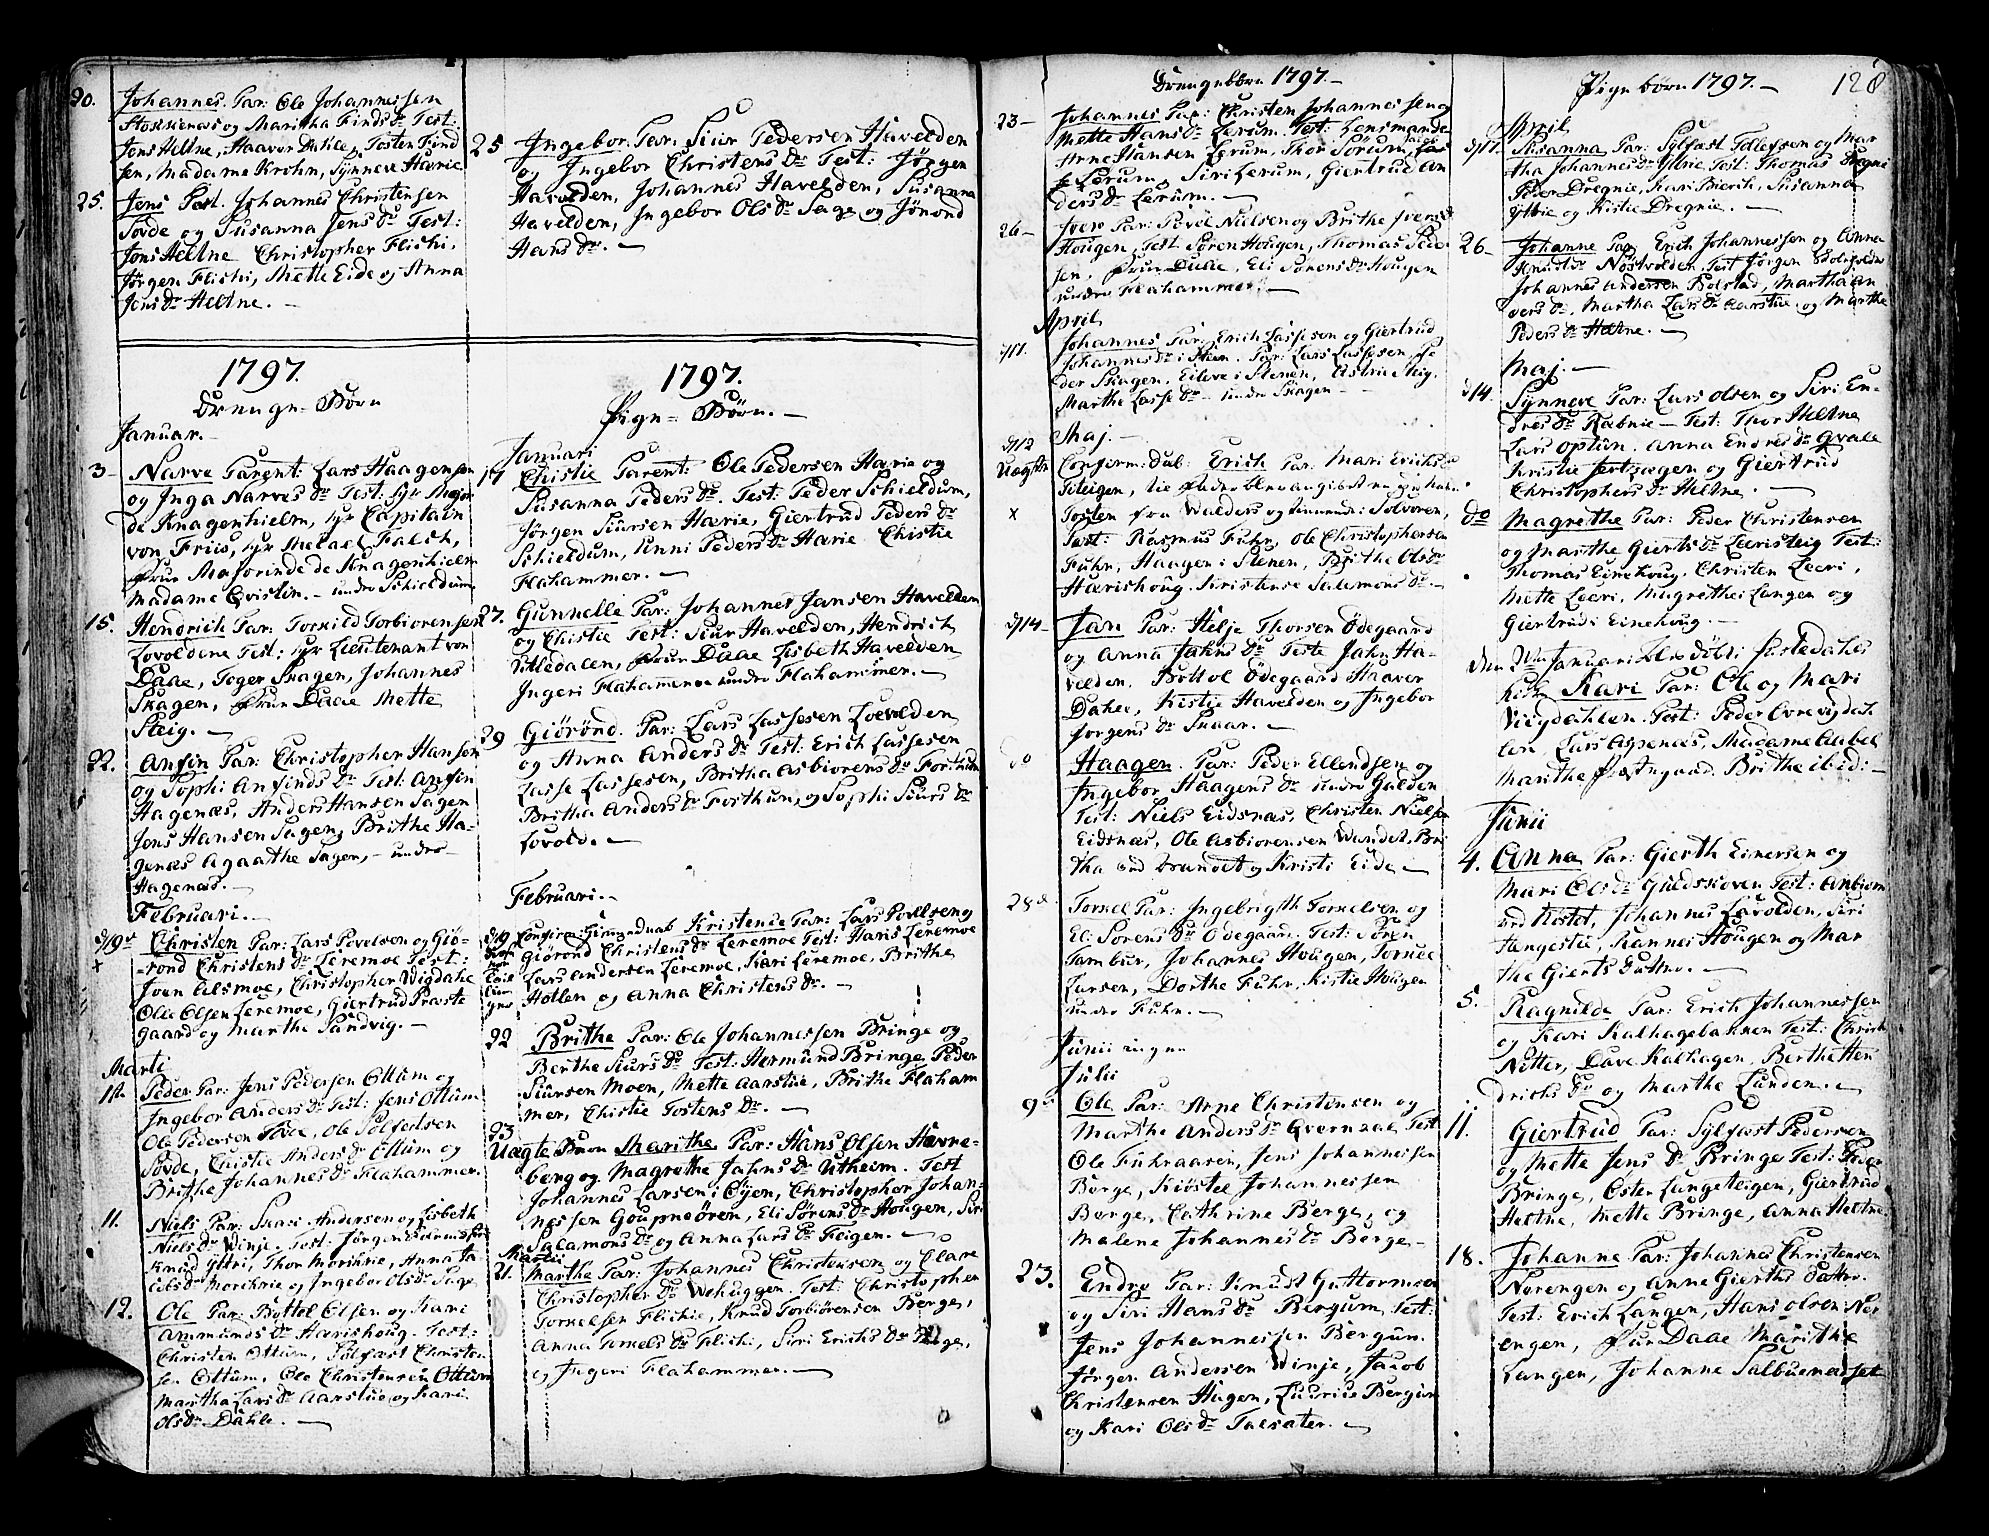 20. Johannes. Par: Ole Johannessen
og Maritha Finds Dr Test:
Jens Heltne, Haavor Dahle, Tosten Find
sen, Madame Krohn, Synneve Hærie
25. Jens Par. Johannes Christensen
Tovde og Susanna Jens Dr Test:
Jens Heltne Christopher Flichi,
Jørgen Flichi, Mette Eide og Anna
Jens Dr Heltne. —
1797.
Drenge-Børn
Januar. —
3— Narve Parent: Lars Haagensen
og Inga Narves Dr Test: Hr Major
de Knagenhielm, Hr Capitain
von Friis, Hr Falch,
Frue Majorinde de Knagenhielm
Madame Qvistin. — Schieldum
15. Hendrich Par: Torkild Torbiorensen
Lovoldene Test: Hr Lieutenant von
Daae, Toger Skagen, Johannes
Skagen, Frue Daae Mette
Steig. —
22. Anfin Par: Christopher Hansen
og Sophi Anfinds Dr Test: Anfin
Hagenæs, Anders Hansen Sagen
Jens Hansen Sagen, Brithe Ha-
genæs Agaathe Sagen, —
Hagenæs. —
Februari. —
d/19de Christen Par: Lars Povelsen og Giø-
x rond Christens Dr Leremoe Test:
Iven Alsmoe, Christopher Wigdahl
Ole Olsen Leremoe, Giertrud Præste
gaard og Marthe Sandvig. —
Marti
12. Peder Par: Jens Pedersen Ottum og
Ingebor Anders Dr Test: Jens Ottum
Ole Pedersen Tovde, Ole Sølfestsen
Tovde, Christie Anders Dr Ottum og
Brithe Johannes Dr Flahammer.
11. Niels Par: Andersen og Lisbeth
Niels Dr Winje. Test: Jørgen
Knud Ytri, Thor Morchrie, Anna Ja
cobs Dr Morchrie og Ingebor Ols Dr
12. Ole Par: Bottel Olsen og Kari
Ammunds Dr Hærishoug. Test:
Christen Ottum, Sølfæst Christen
sen Ottum, Ole Christensen Ottum
Martha Lars Dr Aarstue og Kari
Ols Dr Dahle. —
25 Ingebor. Par. Siur Pedersen Havelden
og Ingebor Christens Dr Test: Jørgen
Havelden, Johannes Havelden, Susanna
Havelden, Ingebor Ols Dr Sage og Jørond
Hans Dr. —
1797.
Pige-Børn. —
Januari
17 Christie Parent: Ole Pedersen Hærie og
Susanna Peders Dr. Test: Peder Schieldum,
Jørgen Siursen Hærie, Giertrud Peders Dr
Schieldum, Unni Peders Dr Hærie Christie
Flahammer. —
27. Gunnelle Par: Johannes Jansen Havelden
og Christie Test: Siur Havelden, Hendrich
Utledalen, Frue Daae Lisbeth Havelden
Ingeri Flahammer Flahammer. —
29 Giørønd. Par: Lars Lassesen Loevolden
og Anna Anders Dr Test: Erich Lassesen
Lasse Lassesen, Britha Asbiorens Dr Forthun
Britha Anders Dr Forthun, og Sophi Siurs Dr
Lovold. —
Februari. —
d/19 Confirm: Kristense Par: Lars Povelsen og
Giørond Christens Dr Leremoe Test: Hans Leremoe
Lars Andersen Leremoe, Kari Leremoe, Brithe
Hollen og Anna Christens Dr. —
22 Brithe Par: Ole Johannessen Bringe og
Berthe Siurs Dr Test: Hermund Bringe, Peder
Siursen Moen, Mette Aarstue, Brithe Flaham
mer, Christie Tostens Dr. —
23
Uægte Barn Marithe Par: Hans Olsen Havne-
berg og Magrethe Jahns Dr Utheim. Test
Johannes Larsen i Øyen, Christopher Johan-
nessen Goupneøren, Eli Sørens Dr Hougen, Siri
Salamons Dr og Anna Lars Dr Fleigen. —
Martii
21. Marthe Par: Johannes Christensen og Clare
Christopher Dr Wehuggen Test: Christopher
Tornelsen Flichie, Knud Torbiorensen Berge,
Anna Tornels Dr Flichi, Siri Erichs Dr Berge,
og Ingeri Flahammer. —
Drengebørn 1797. —
23— Johannes Par: Christen Johannessen og
Mette Hans Dr Lerum. Test: Lensmand
Arne Hansen Lerum, Thor Sorum,
Lerum, Siri Lerum, Giertrud An
ders Dr Lerum. —
26— Iver Par: Povel Nielsen og Brithe Ivers Dr
Hougen, Test Søren Hougen, Thomas
sen, Frue Daae, Eli Sørens Dr Hougen
Flahammer. —
April
d/17. Johannes Par: Erich Lassesen og Giertrud
Johannes Dr i Steen. Par: Lars Lassesen, Pe
der Skagen, Eileve i Stenen, Astrie Steig,
Marthe Lasse Dr — Skagen —
d/12 Maj. —
Uægte Confirm: dab: Erich Par: Mari Erichs Dr
Steigen,
x Tosten fra Walders og Solvoren,
Test: Rasmus Fuhr, Ole Christophersen
Fuhr, Haagen i Stenen, Brithe Ols Dr
Hærishoug. Kristense Salemons Dr. —
d/14— Jan Par: Helje Thorsen Ødegaard
og Anna Jahns Dr Teste Jahn Ha-
velden, Bottol Ødegaard Haavor
Dahle, Kistie Havelden og Ingebor
Jørgens Dr Snaar. —
do Haagen. Par: Peder Ellendsen og
Ingebor Haagens Dr Galden
Test: Niels Eidsnæs, Christen Nielsen
Eidsnæs, Ole Asbiorensen Wandet, Bri
tha og Kristi Eide —
28de Tornel Par: Ingebrigth Tornelsen og
Eli Sørens Dr Ødegaard. Test: Søren
Tambur, Johannes Hougen, Tornel
Larsen, Dorthe Fuhr, Kistie Hougen
Fuhr. —
Junii ingen
Julii
9de Ole Par: Arne Christensen og
Marthe Anders Dr Qvernzal Test
Ole Fuhraasen, Jens Johannessen
Berge, Kiøstel Johannessen
Berge, Cathrine Berge, og
Malene Johannes Dr Berge —
23. Endre Par: Knud Guttormsen
og Siri Hans Dr Bergum, Test:
Jens Johannessen Bergum.
Jørgen Andersen Winje, Jacob
Christensen Hagen, Laurius Bergum
og Kari Ols Dr Talsater. —
Pigebørn 1797. — 128
April
d/17. Susanna Par: Sylfæst Tollefsen og Mar
tha Johannes Dr Ytrie Test: Thomas Dregni
Peder Dregnie, Kari Bierik, Susanna
Ytrie og Kistie Dregnie. —
26— Johanne Par Erich Johannessen og Anna
Knuds Dr Nostvolden Test Jørgen
Johannes Andersen Bolstad, Martha An
ders Dr, Martha Lars Dr Aarstue og Marthe
Peders Dr Heltne. —
Maj. —
d/14. Synneve Par: Lars Olsen og Siri En-
dres Dr Ræbnie — Test: Thor Heltne
Lars Optun. Anna Endres Dr Qvale
Kristie og Giertrud
Christophers Dr Heltne. —
do Magrethe Par: Peder Christensen
og Marthe Gierts Dr Leeristeig Test:
Thomas Einehoug, Christen Leeri,
Mette Leeri, Magrethe i Langen og
Giertrud Einehoug. —
Januari døbt i Jostedahls
Kirke Kari Par: Ole og Mari
Viigdahlen. Test: Peder Øvrevigdah
len, Lars Aspenæs, Madame Aabel
Marithe Præstegaard. Brithe ibid: —
Junii
4. Anna Par: Gierth Einersen og
Mari Ols Dr Guldskoven Test: Anbiorn
Kostet, Johannes Lavolden, Siri
Hangestie, Rannei Hougen og Mar
the Gierts Datter. —
5. Ragnilde Par: Erich Johannessen
og Kari Kalhagebakken Test: Christi
Nitter, Dave Kalhagen, Berthe Hen
drichs Dr og Marthe Lunden. —
11. Giertrud Par: Sylfæst Pedersen
og Mette Jens Dr Bringe Test: Peder
Bringe, Osten Lungeteigen, Giertrud
Heltne, Mette Bringe, Anna Heltne
18. Johanne Par: Johannes Christensen
Norengen og Anne Gierths Datter.
Test: Erich Langen, Hans Olsen Nor
engen, Frue Daae Marithe
Langen, Johanne Salbuenæset